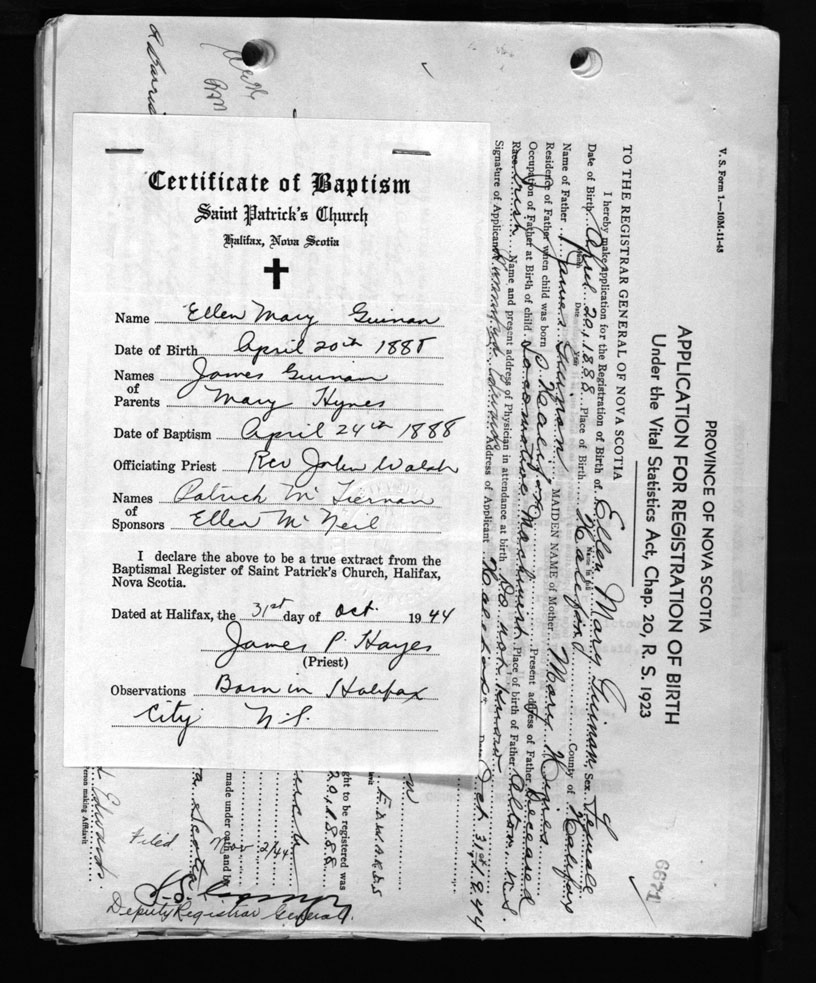 Certificate of Baptism
Saint Patrick's Church
Halifax, Nova Scotia
Name Ellen Mary Guinan
Date of Birth April 20th 1888
Names of Parents James Guinan
Mary Hynes
Date of Baptism April 24th 1888
Officiating Priest Rev John Walsh
Names of Sponsors Patrick McTiernan
Ellen McNeil
I declare the above to be a true extract from the
Baptismal Register of Saint Patrick's Church, Halifax,
Nova Scotia.
Dated at Halifax, the 31st day of Oct. 1944
James P. Hayes
(Priest)
Observations Born in Halifax
City N.S.
V. S. Form 1.—10M-11-43
PROVINCE OF NOVA SCOTIA
APPLICATION FOR REGISTRATION OF BIRTH
Under the Vital Statistics Act, Chap. 20, R. S. 1923
6671
TO THE REGISTRAR GENERAL OF NOVA SCOTIA
I hereby make application for the Registration of Birth of Ellen Mary Guinan, Sex Female
Date of Birth April 20, 1888 Place of Birth Halifax County of Halifax
Name of Father James Guinan MAIDEN NAME of Mother Mary Hynes
Residence of Father when child was born Halifax Present address of Father Deceased
Occupation of Father at Birth of child Locomotive Machinist Place of birth of Father N.S.
Race Irish Name and present address of Physician in attendance at birth Do not know
Signature of Applicant Address of Applicant Date Oct. 31st 1944
ght to be registered was
EDWARDS
20, 1888
made under oath and by
Scotia
Edwards
erson making Affidavit
Filed Nov 2/44
Deputy Registrar General